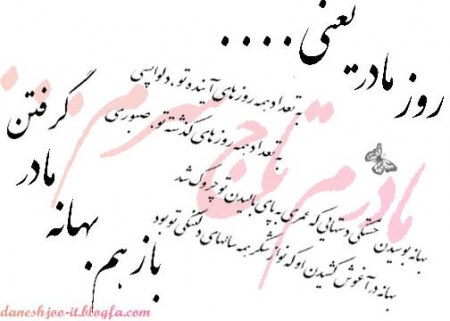 روز مادر یعنی ....
به تعداد همه روزهای آینده تو ، دلواپسی
به تعداد همه روزهای گذشته تو ، صبوری
مادرم تاج سرم
بهانه بوسیدن خستگی دستهایی که عمری به پای بالیدن تو چروک شد
بهانه در آغوش کشیدن او که نوازشگر همه سالهای دلتنگی تو بود
باز هم
بهانه
مادر
گرفتن
daneshjoo-it.blogfa.com